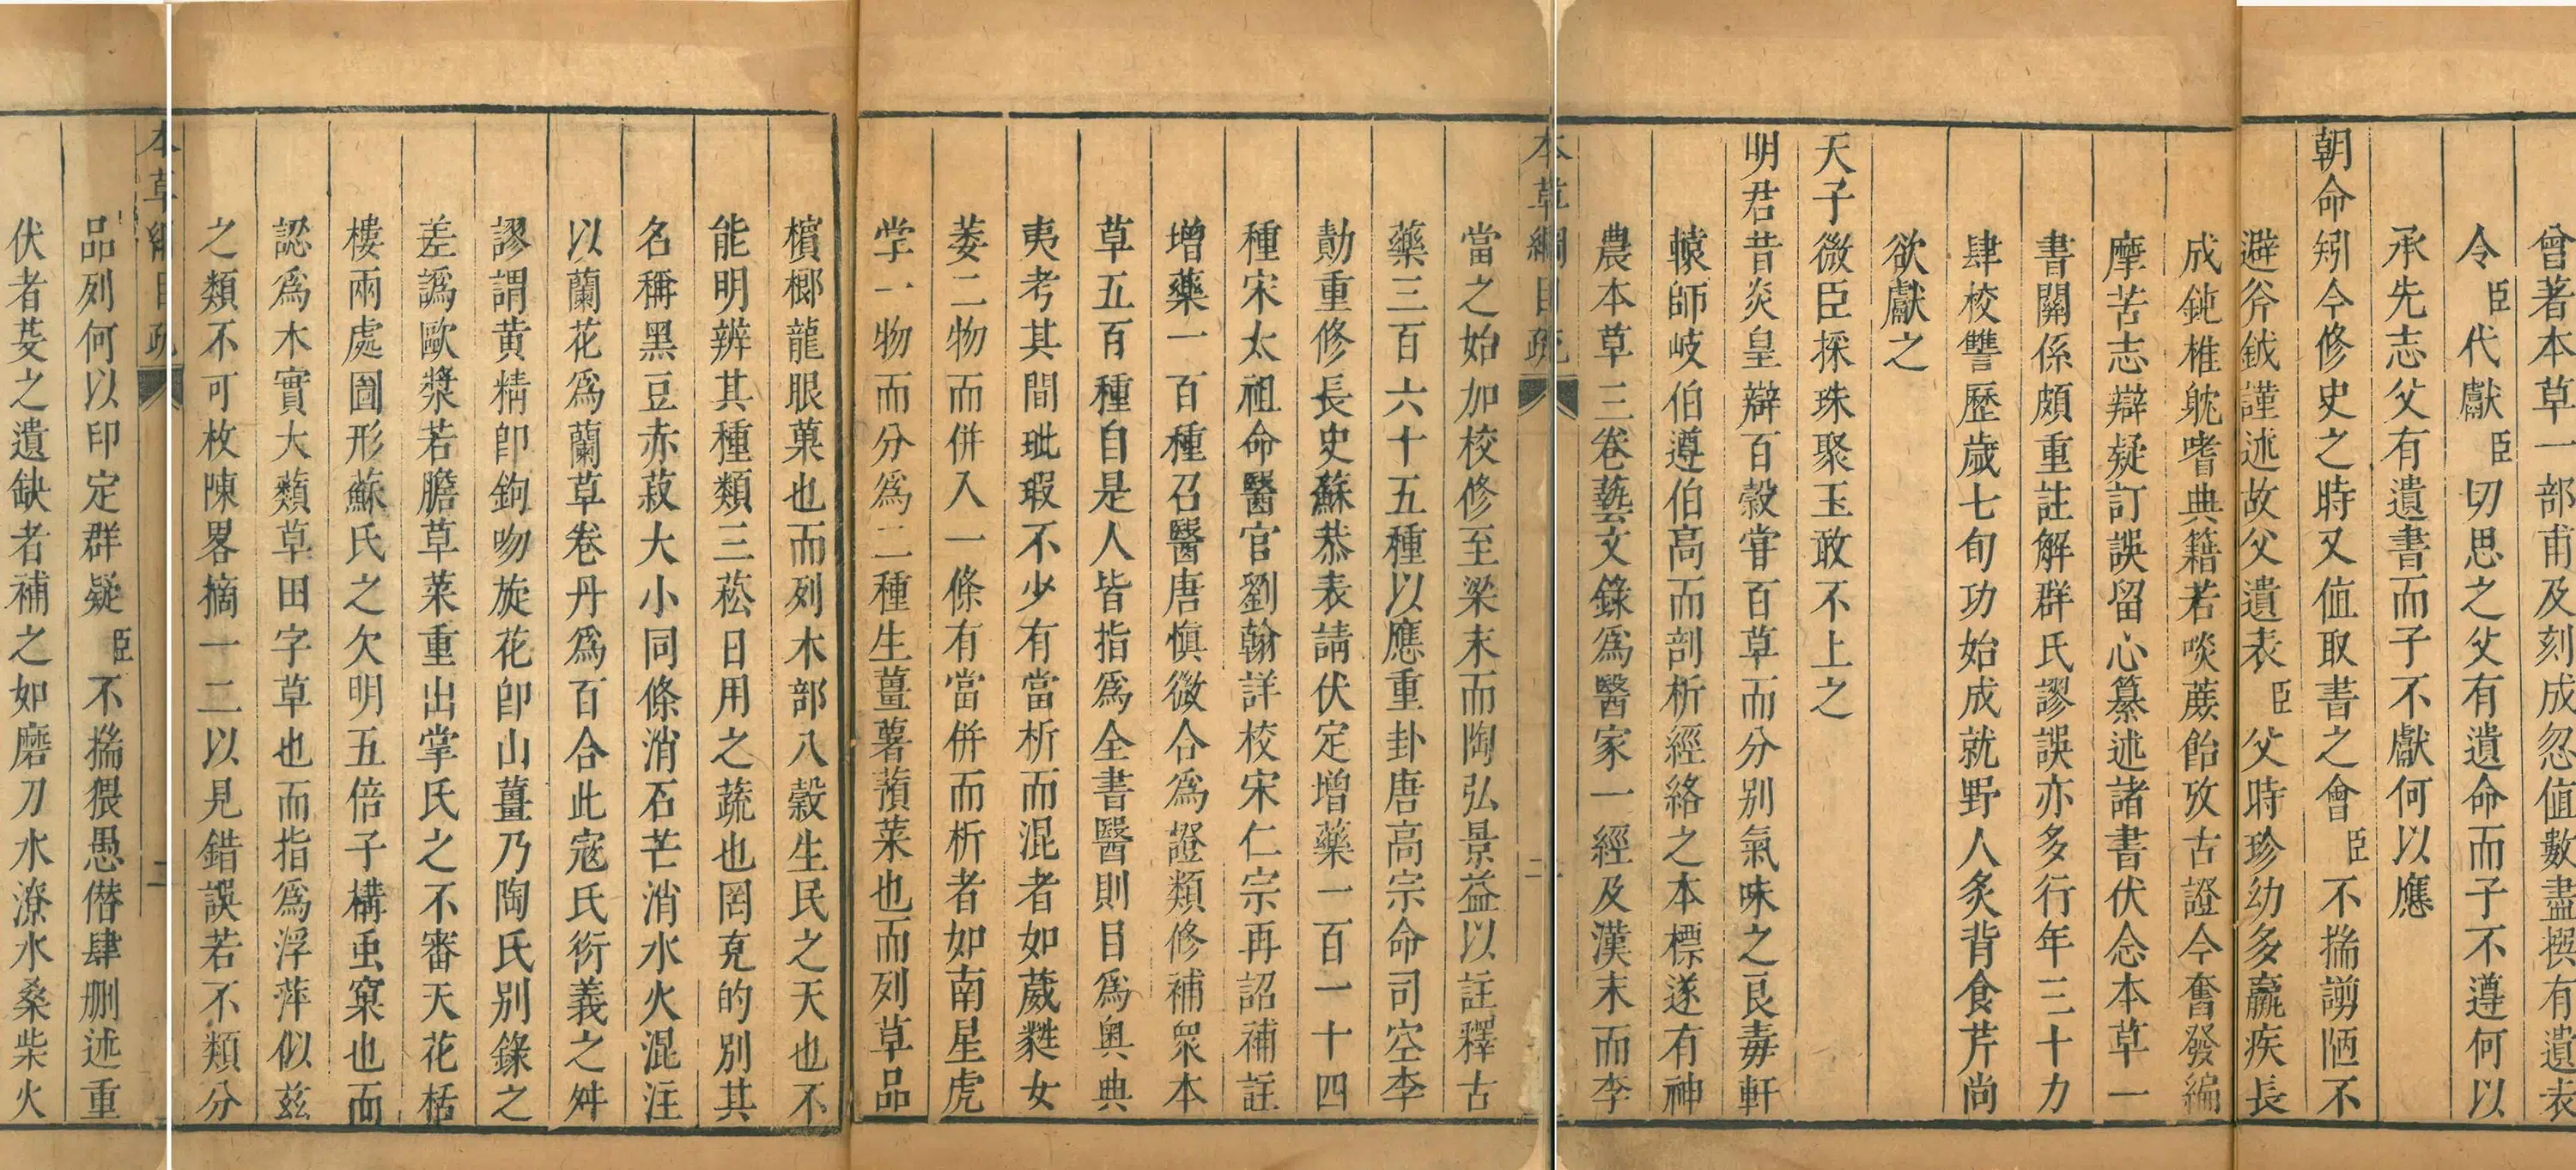 曾著本草一部甫及刻成忽值數盡撰有遺表
令臣代獻臣切思之父有遺命而子不遵何以
承先志父有遺書而子不獻何以應
朝命矧今修史之時又值取書之會臣不揣譾陋不
避斧鉞謹述故父遺表臣父時珍幼多羸疾長
成鈍椎躭嗜典籍若啖蔗飴攷古證今奮發編
摩苦志辯疑訂誤留心纂述諸書伏念本草一
書關係頗重註解群氏謬誤亦多行年三十力
肆校讐歷歲七旬功始成就野人炙背食芹尚
欲獻之
天子微臣採珠聚玉敢不上之
明君昔炎皇辯百穀甞百草而分别氣味之良毒軒
轅師岐伯遵伯高而剖析經絡之本標遂有神
農本草三卷藝文錄爲醫家一經及漢末而李
本草綱目疏
二
當之始加校修至梁末而陶弘景益以註釋古
藥三百六十五種以應重卦唐高宗命司空李
勣重修長史蘇恭表請伏定增藥一百一十四
種宋太祖命醫官劉翰詳校宋仁宗再詔補註
增藥一百種召醫唐慎微合爲證類修補眾本
草五百種自是人皆指爲全書醫則目爲奥典
夷考其間玼瑕不少有當析而混者如葳蕤女
萎二物而併入一條有當併而析者如南星虎
掌一物而分爲二種生薑薯蕷菜也而列草品
檳榔龍眼菓也而列木部八穀生民之天也不
能明辨其種類三菘日用之蔬也罔克的别其
名稱黑豆赤菽大小同條消石芒消水火混注
以蘭花爲蘭草卷丹爲百合此宼氏衍義之舛
謬謂黄精卽鉤吻旋花卽山薑乃陶氏别錄之
差譌歐漿若膽草菜重出掌氏之不審天花栝
樓兩處圖形蘇氏之欠明五倍子構虫窠也而
認爲木實大蘋草田字草也而指爲浮萍似兹
之類不可枚陳畧摘一二以見錯誤若不類分
本草綱目疏
二
品列何以印定群疑臣不揣猥愚僭肆刪述重
伏者芟之遺缺者補之如磨刀水潦水桑柴火